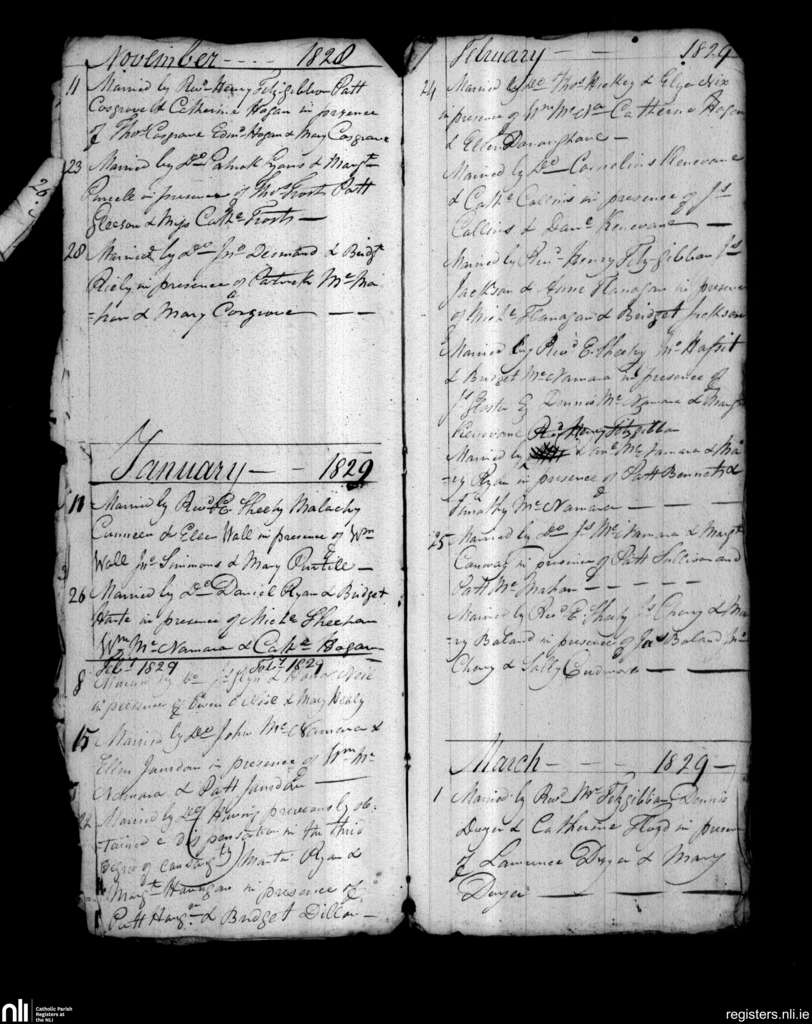 November - - - - 1828
11 Married by Revd. Henry Fitzgibbon Patt
Cosgrove & Catherine Hogan in presence
of Thos. Cosgrave Edmd. Hogan & Mary Cosgrave
23 Married by Do. Patrick & Margt.
Purcell in presence of Thos. Frost Patt
Gleeson & Miss Cathe. Frost —
28 Married by Do. Jno. Desmond & Bridgt.
Riely in presence of Patrick Mc.Ma
-hon & Mary Cosgrove — —
January — - 1829
11 Married by Revd. E. Sheehy Malachy
Cunneen & Ellen Wall in presence of Wm.
Wall Jno. Simmons & Mary Purtill —
26 Married by Do. Daniel Ryan & Bridget
Harte in presence of Michl. Sheehan
Wm. Mc.Namara & Cathe. Hogan
Feby. 1829 Feby. 1829
8 Married by Do. & Honor
in presence of Owen & Mary Healy
15 Married by Do. John Mc.Namara &
Ellen in presence of Wm. Mc.
Namara & Patt
22 Married by Do. (Having previously ob-
tained a dispensation in the third
degree of ) Martin Ryan &
Margt. Hannigan in presence of
Patt & Bridget Dillon —
February — — 1829
24 Married by Do. Thos. Hickey & Eliza Nix
in presence of Catherine Hogan
& Ellen —
Married by Do. Cornelius Renevane
& Cathe. Collins in presence of Js.
Collins & Danl. Renevane —
Married by Revd. Henry Fitzgibbon Js.
Jackson & Anne Flanagan in presence
of Michl. Flanagan & Bridget Jackson
Married by Revd. E. Sheehy
& Bridget Mc.Namara in presence of
Dennis Mc.Namara & Margt.
Renevane Revd. Henry Fitzgibbon
Married by & Mc.Namara & Ma
-ry Ryan in presence of Patt Bennett &
Timothy Mc.Namara — — — —
25 Married by Do. Js. Mc.Namara & Margt.
Conway in presence of Patt Sullivan and
Patt Mc.Mahon — — — — —
Married by Revd. E. Sheehy & Ma
-ry Boland in presence of Jas. Boland Jno.
& Sally — —
March — - - - 1829 —
1 Married by Revd. Mr. Fitzgibbon Dennis
Dwyer & Catherine Floyd in presence
of Lawrence Dwyer & Mary
Dwyer — — — —
26
nli
Catholic Parish
Registers at
the NLI
registers.nli.ie